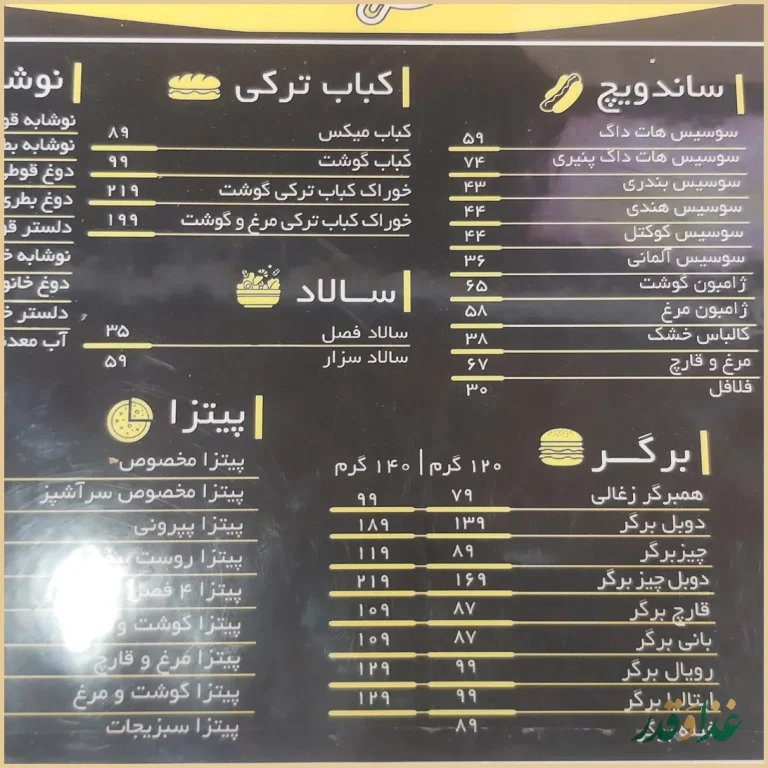 ساندویچ
سوسیس هات داگ ۵۹
سوسیس هات داگ پنیری ۷۴
سوسیس بندری ۴۳
سوسیس هندی ۴۴
سوسیس کوکتل ۴۴
سوسیس آلمانی ۳۶
ژامبون گوشت ۶۵
ژامبون مرغ ۵۸
کالباس خشک ۳۸
مرغ و قارچ ۶۷
فلافل ۳۰
برگر
۱۲۰ گرم | ۱۴۰ گرم
همبرگر زغالی ۷۹ ۹۹
دوبل برگر ۱۳۹ ۱۸۹
چیزبرگر ۸۹ ۱۱۹
دوبل چیز برگر ۱۶۹ ۲۱۹
قارچ برگر ۸۷ ۱۰۹
بانی برگر ۸۷ ۱۰۹
رویال برگر ۹۹ ۱۲۹
ایتالیا برگر ۹۹ ۱۲۹
۸۹
کباب ترکی
کباب میکس ۸۹
کباب گوشت ۹۹
خوراک کباب ترکی گوشت ۲۱۹
خوراک کباب ترکی مرغ و گوشت ۱۹۹
سالاد
سالاد فصل ۳۵
سالاد سزار ۵۹
پیتزا
پیتزا مخصوص
پیتزا مخصوص سرآشپز
پیتزا پپرونی
پیتزا روست
پیتزا ۴ فصل
پیتزا گوشت و
پیتزا مرغ و قارچ
پیتزا گوشت و مرغ
پیتزا سبزیجات
نوش
نوشابه قو
نوشابه بط
دوغ قوطی
دوغ بطری
دلستر قو
نوشابه خ
دوغ خانو
دلستر خ
آب معدن
غذاوقدر